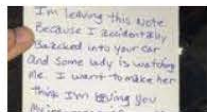 I'm leaving this Note
Because I accidentally
Backed into your car
and some lady is watching
me. I want to make her
think I'm giving you